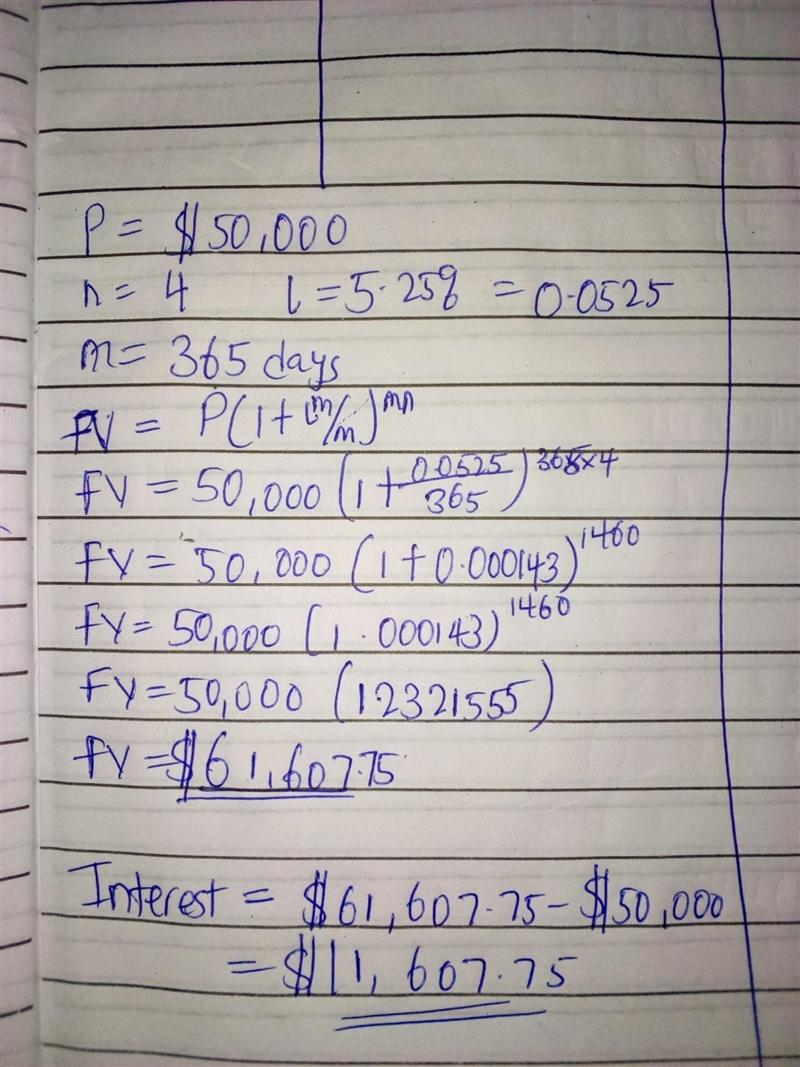 P = $50,000
n = 4 i = 5.25% = 0.0525
m = 365 days
FV = P(1 + im/m)^mn
FV = 50,000 (1 + 0.0525/365)^365×4
FV = 50,000 (1 + 0.000143)^1460
FV = 50,000 (1.000143)^1460
FV = 50,000 (1.2321555)
FV = $61,607.75
Interest = $61,607.75 - $50,000
= $11,607.75